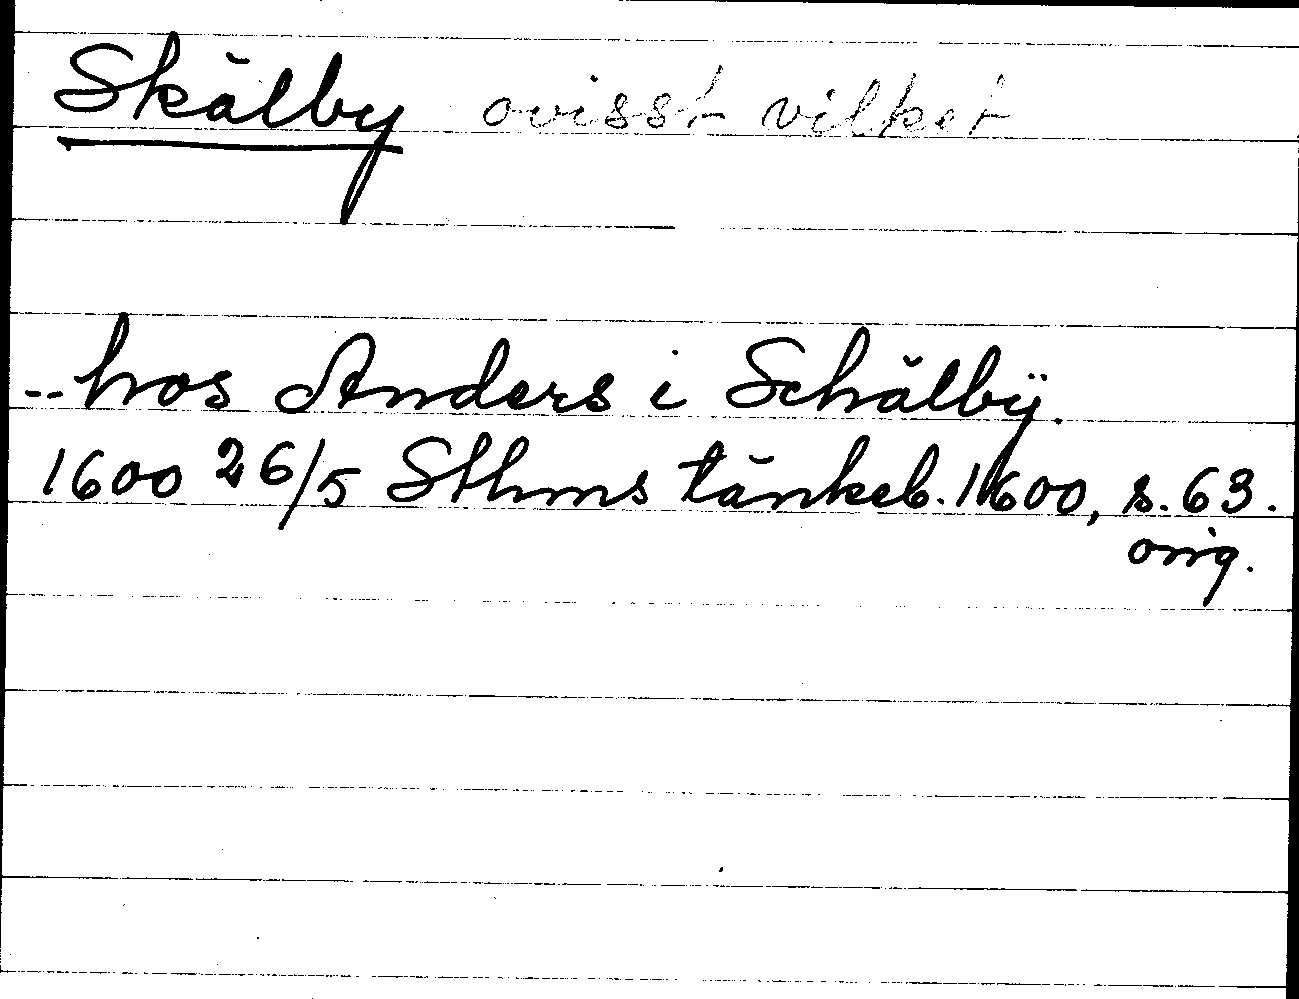 Skälby ovisst vilket
-- hos Anders i Schälbÿ.
1600 26/5 Sthms tänkeb. 1600, s. 63.
orig.